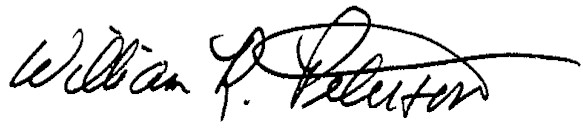 William R. Peterson